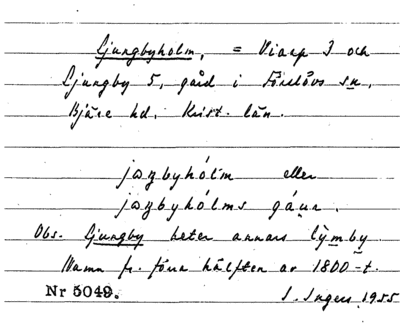 Ljungbyholm, = Viarp 3 och
Ljungby 5, gård i Förslövs sn,
Bjäre hd, Krist. län.
jɷŋbyhólm eller
jɷŋbyhólms gáʋr.
Obs. Ljungby heter annars lỳmby
Namn fr. förra hälften av 1800-t.
Nr 5049. S. Ingers 1955